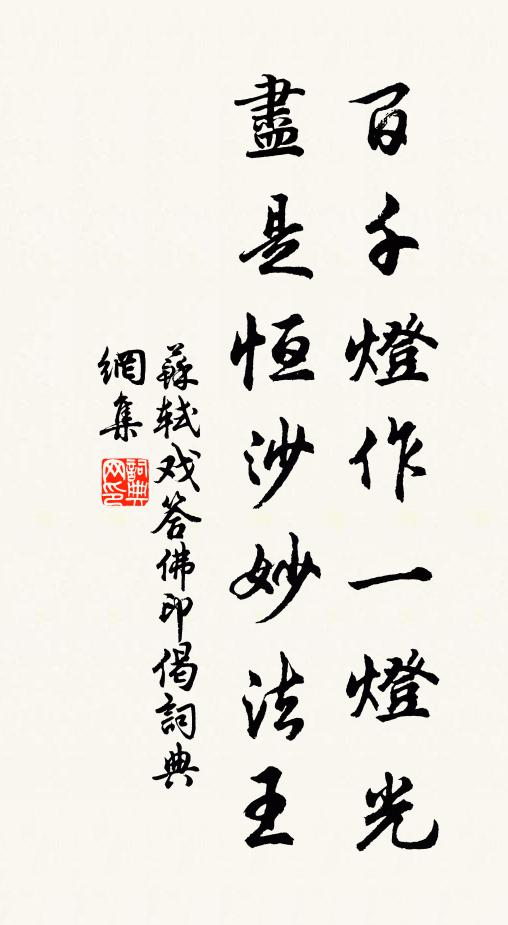 百千燈作一燈光
盡是恒沙妙法王
蘇軾戏答佛印偈詞典
網集
詞典
网印